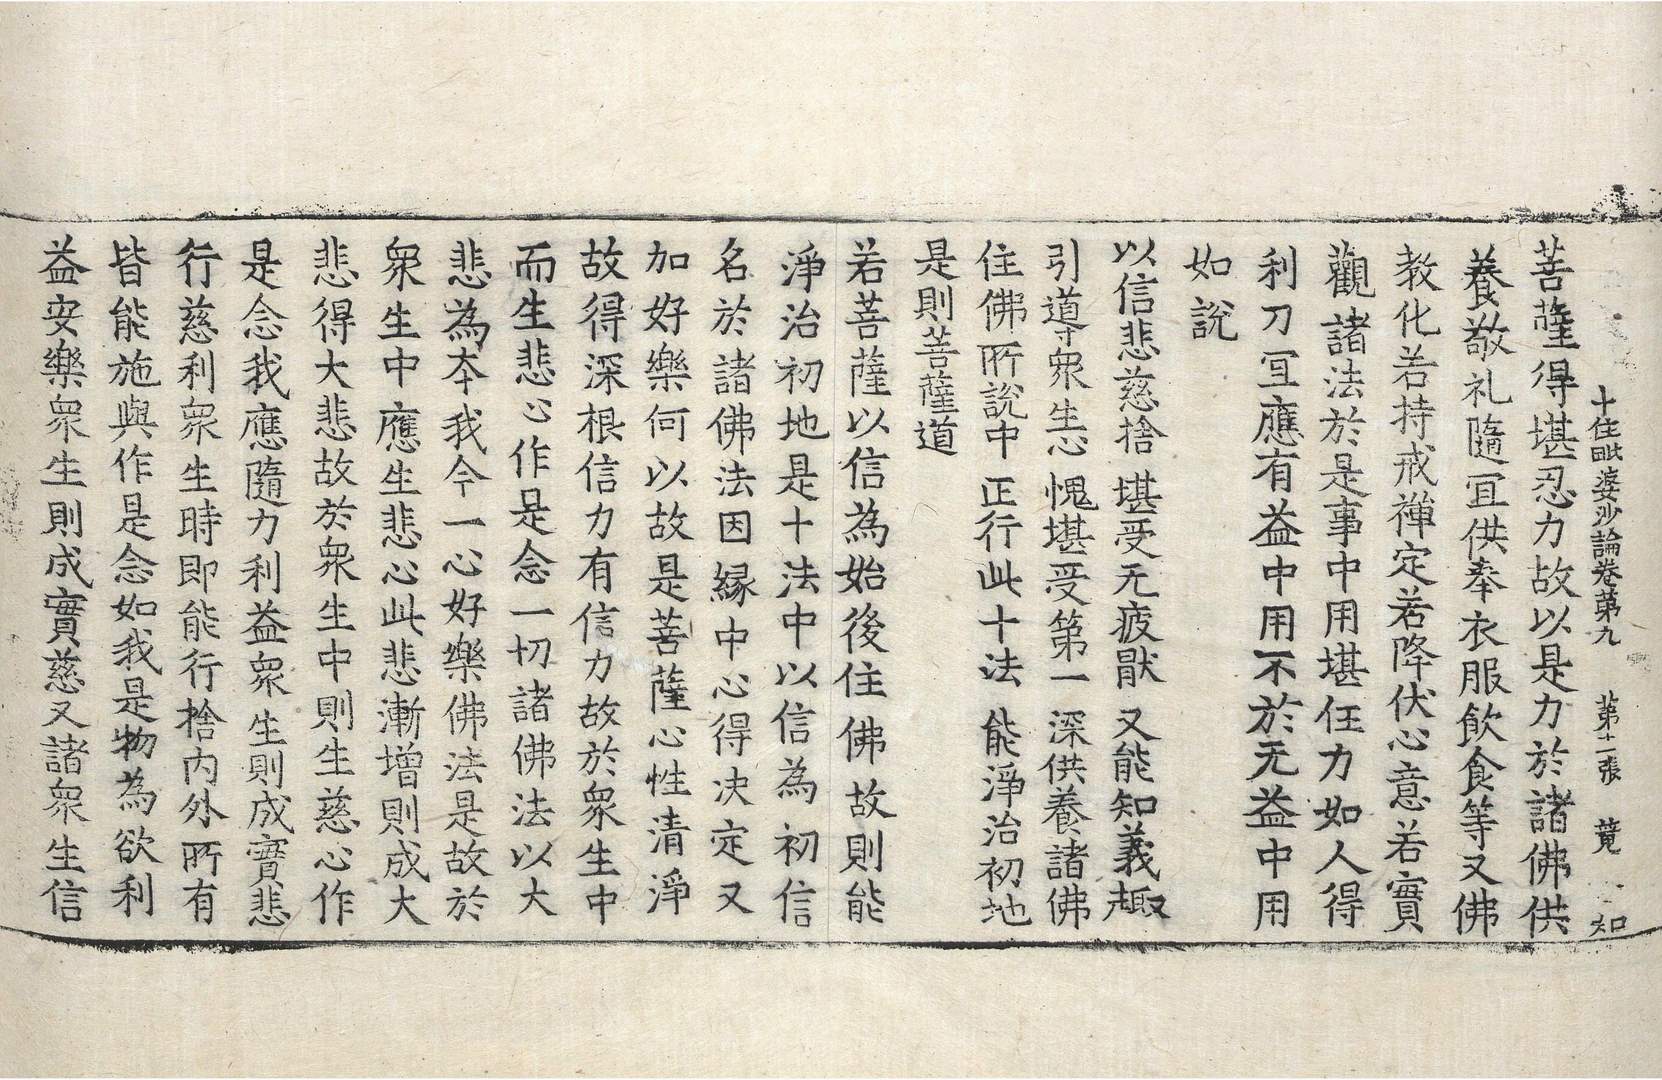 十住毗婆沙論卷第九　第十二張　竟　知
菩薩得堪忍力故以是力於諸佛供
養敬礼隨宜供奉衣服飲食等又佛
教化若持戒禪定若降伏心意若實
觀諸法於是事中用堪任力如人得
利刀宜應有益中用不於无益中用
如說
以信悲慈捨　堪受无疲猒　又能知義趣
引導衆生心　愧堪受第一　深供養諸佛
住佛所說中　正行此十法　能淨治初地
是則菩薩道
若菩薩以信為始後住佛故則能
淨治初地是十法中以信為初信
名於諸佛法因緣中心得決定又
加好樂何以故是菩薩心性清淨
故得深根信力有信力故於衆生中
而生悲心作是念一切諸佛法以大
悲為夲我今一心好樂佛法是故於
衆生中應生悲心此悲漸增則成大
悲得大悲故於衆生中則生慈心作
是念我應隨力利益衆生則成實悲
行慈利衆生時即能行捨内外所有
皆能施與作是念如我是物為欲利
益安樂衆生則成實慈又諸衆生信